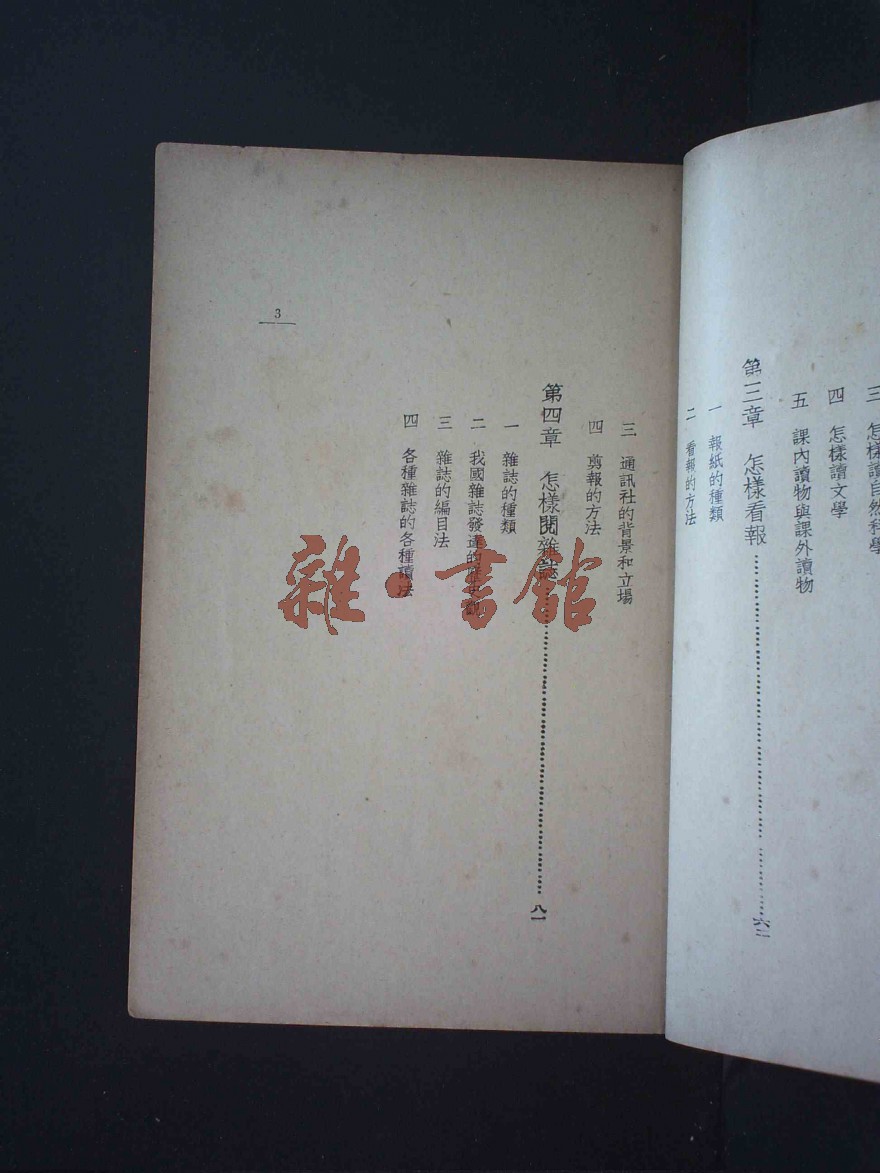 三 怎樣讀自然科學
四 怎樣讀文學
五 課內讀物與課外讀物
第三章 怎樣看報 六二
一 報紙的種類
二 看報的方法
三 通訊社的背景和立場
四 剪報的方法
第四章 怎樣閱雜誌 八一
一 雜誌的種類
二 我國雜誌發達的
三 雜誌的編目法
四 各種雜誌的各種讀法
3
雜·書館